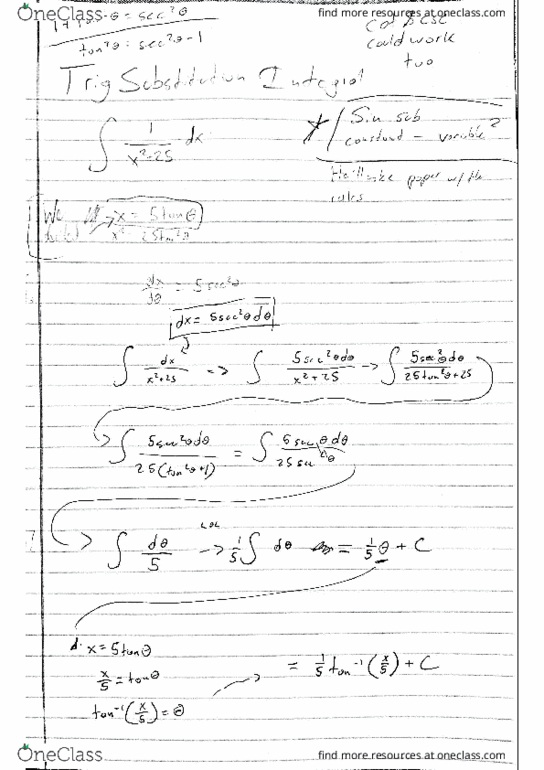 OneClass find more resources at oneclass.com
1+tan²θ = sec²θ
tan²θ = sec²θ-1
could work
too
Trig Substitution Integral
∫ 1/(x²+25) dx
Sin sub
constand - variable²
paper w/ the
rules
We
x = 5tanθ
x² = 25tan²θ
dx/dθ = 5sec²θ
dx = 5sec²θ dθ
∫ dx/(x²+25) -> ∫ 5sec²θdθ/(x²+25) -> ∫ 5sec²θdθ/(25tan²θ+25)
∫ 5sec²θdθ/(25(tan²θ+1)) = ∫ 5sec²θdθ/(25sec²θ)
∫ dθ/5 -> 1/5 ∫ dθ = 1/5 θ + C
x = 5tanθ
x/5 = tanθ
tan⁻¹(x/5) = θ
= 1/5 tan⁻¹(x/5) + C
OneClass find more resources at oneclass.com